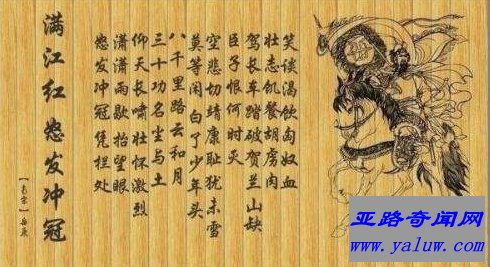 满江红 怒发冲冠
怒发冲冠凭栏处
潇潇雨歇抬望眼
仰天长啸壮怀激烈
三十功名尘与土
八千里路云和月
莫等闲白了少年头
空悲切靖康耻犹未雪
臣子恨何时灭
驾长车踏破贺兰山缺
壮志饥餐胡虏肉
笑谈渴饮匈奴血
亚路奇闻网
www.yaluw.com